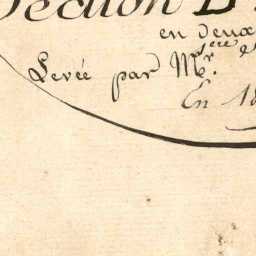 Section
en deux
Levée par Mr.
En 18